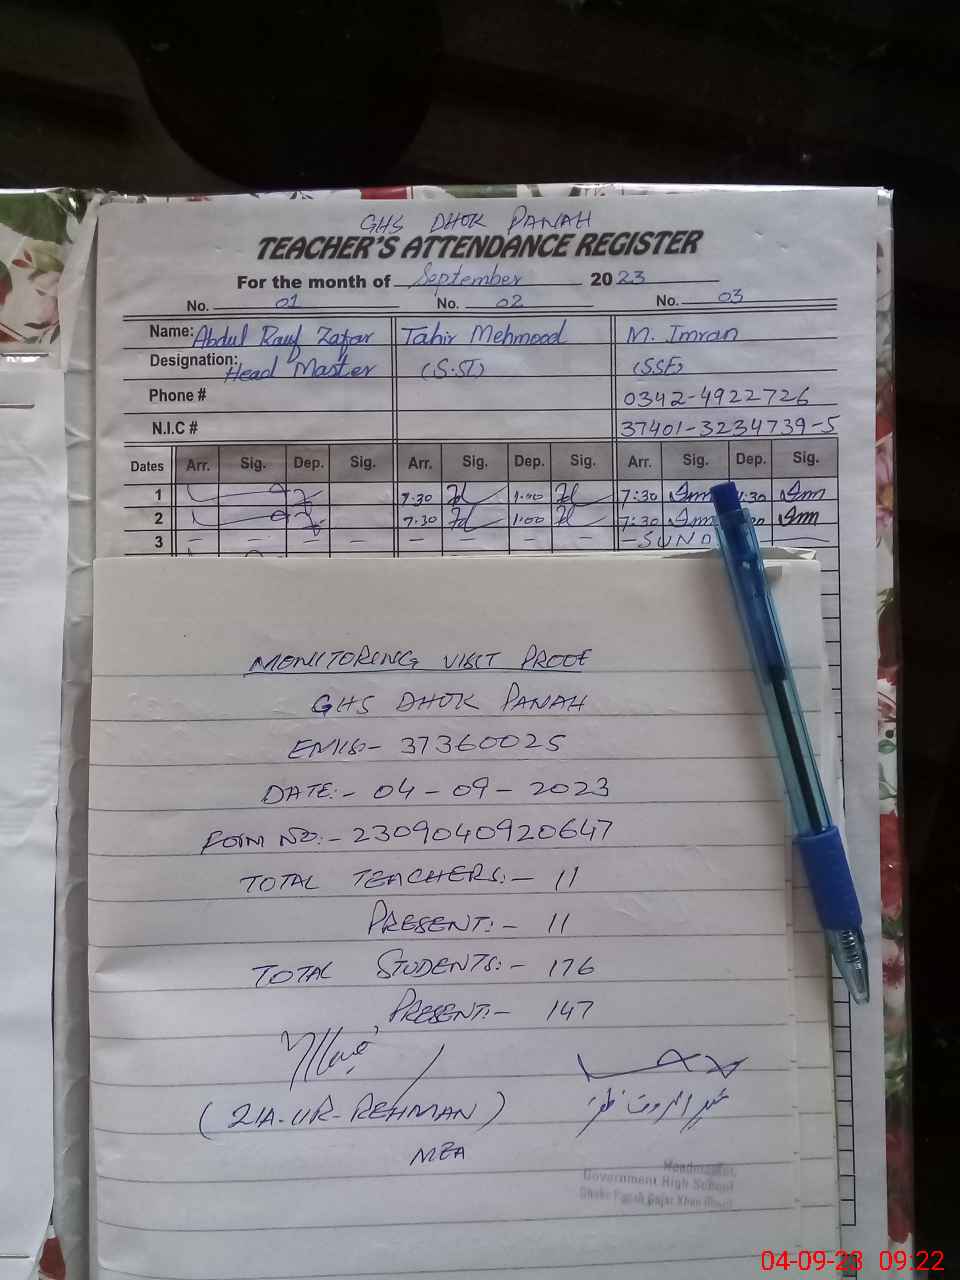 GHS DHOK PANAH
TEACHER'S ATTENDANCE REGISTER
For the month of September 2023
No. 01 No. 02 No. 03
Name: Abdul Rauf Zafar Tahir Mehmood M. Imran
Designation: Head Master (S.ST) (SSE)
Phone # 0342-4922726
N.I.C # 37401-3234739-5
Dates Arr. Sig. Dep. Sig. Arr. Sig. Dep. Sig. Arr. Sig. Dep. Sig.
1 7:30 1:00 7:30 :30
2 7:30 1:00 7:30
3 - - - - - - - - - SUND
MONITORING VISIT PROOF
GHS DHOK PANAH
EMIS:- 37360025
DATE:- 04-09-2023
FORM NO:- 2309040920647
TOTAL TEACHERS:- 11
PRESENT:- 11
TOTAL STUDENTS:- 176
PRESENT:- 147
(ZIA-UR-REHMAN)
MEA
Headmaster,
Government High School
Dhoke Panah Gujar Khan
04-09-23 09:22